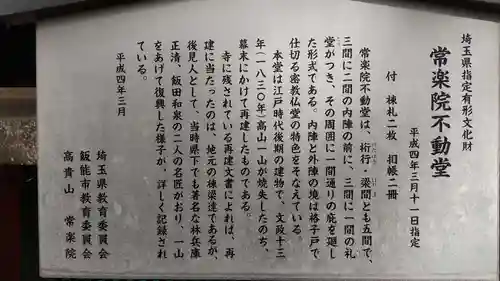 埼玉県指定有形文化財
常楽院不動堂
平成四年三月十一日指定
付　棟札二枚　扣帳二冊
常楽院不動堂は、桁行・梁間とも五間で、
三間に二間の内陣の前に、三間に一間の礼
堂がつき、その周囲に一間通りの庇を廻し
た形式である。内陣と外陣の境は格子戸で
仕切る密教仏堂の特色をそなえている。
本堂は江戸時代後期の建物で、文政十三
年（一八三〇年）高山一山が焼失したのち、
幕末にかけて再建したものである。
寺に残されている再建文書によれば、再
建に当たったのは、地元の棟梁達であるが、
後見人として、当時県下でも著名な林兵庫
正清、飯田和泉の二人の名匠がおり、一山
をあげて復興した様子が、詳しく記録され
ている。
平成四年三月
埼玉県教育委員会
飯能市教育委員会
高貴山　常楽院